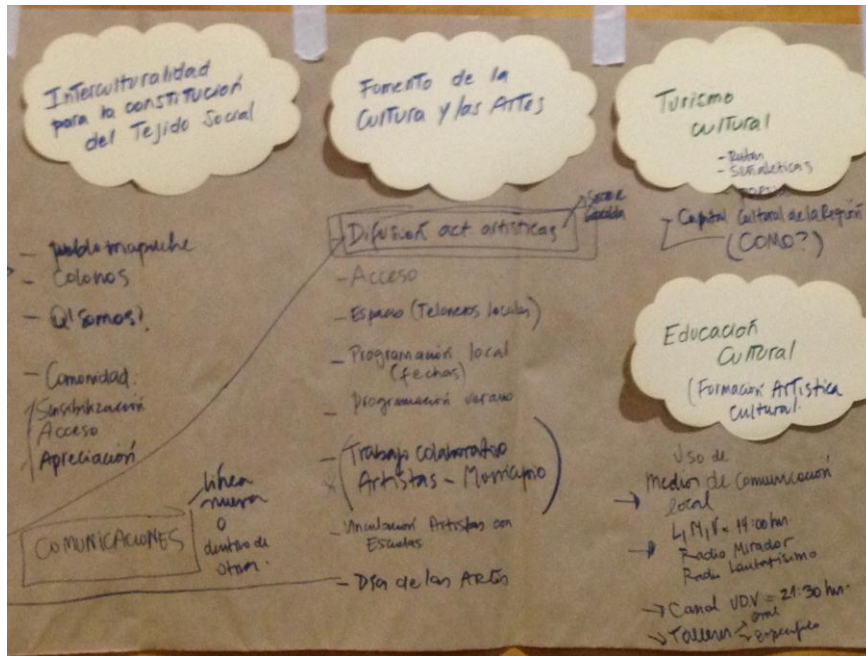 Interculturalidad
para la constitución
del Tejido Social
- pueblo mapuche
- Colonos
- Q! somos?
- Comunidad.
Sensibilización
Acceso
Apreciación
COMUNICACIONES
línea
nueva
o
dentro de
otra.
Fomento de la
Cultura y las Artes
Difusión act artísticas
- Acceso
- Espacio (Teloneros locales)
- Programación local
(fechas)
- Programación verano
- Trabajo colaborativo
Artistas - Municipio
- Vinculación Artistas con
Escuelas
- Día de las Artes
Turismo
cultural
- Rutas
- Señaléticas
- Capital Cultural de la Región
(COMO?)
Educación
Cultural
(Formación Artística
Cultural.
Uso de
medios de comunicación
local
L, M, V = 14:00 hr.
Radio Mirador
Radio Lautarísimo
→ Canal UDV = 21:30 hr.
→ Talleres